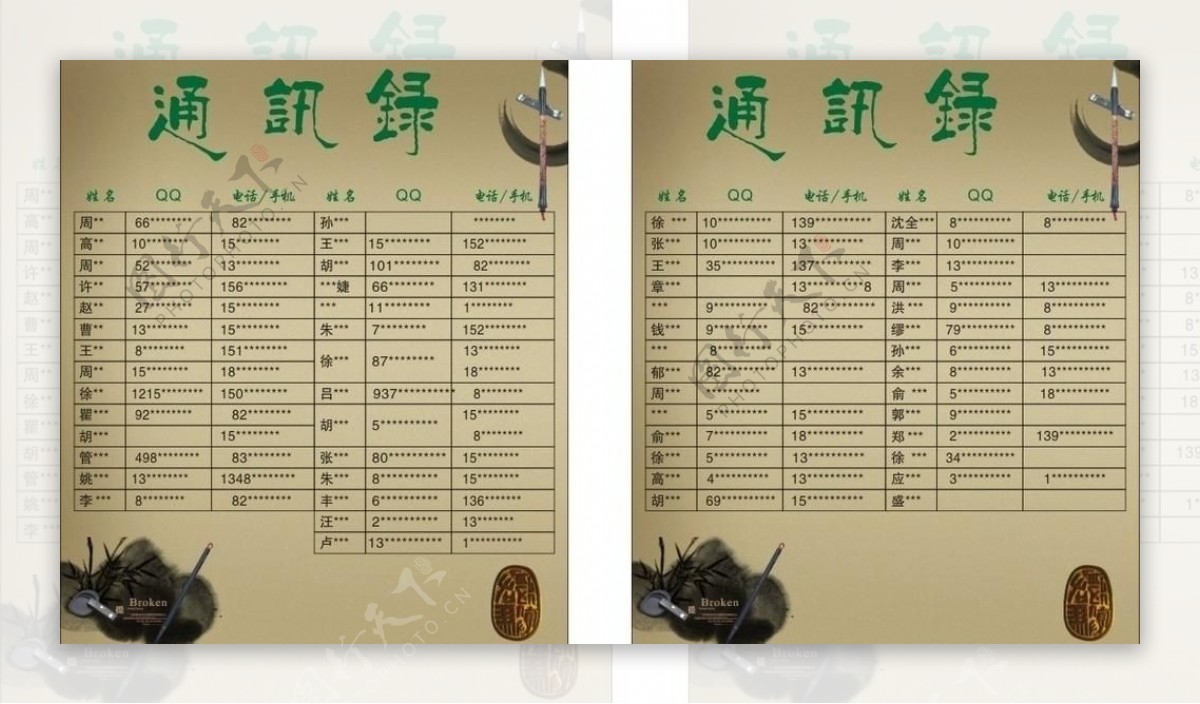 通訊録
姓名 QQ 电话/手机 姓名 QQ 电话/手机
周** 66******** 82******** 孙*** ********
高** 10******** 15******** 王*** 15******** 152********
周** 52******** 13******** 胡*** 101******** 82********
许** 57******** 156******** ***婕 66******** 131********
赵** 27******** 15******** *** 11******** 1********
曹** 13******** 15******** 朱*** 7******** 152********
王** 8******** 151******** 徐*** 87******** 13********
周** 15******** 18******** 18********
徐** 1215******** 150******** 吕*** 937*********** 8********
瞿*** 92******** 82******** 胡*** 5********** 15********
胡*** 15******** 8********
管*** 498******** 83******** 张*** 80********** 15********
姚*** 13******** 1348******** 朱*** 8******** 15********
李 *** 8******** 82******** 丰*** 6******** 136*******
汪*** 2********** 13*******
卢*** 13********** 1**********
Broken
通訊録
姓名 QQ 电话/手机 姓名 QQ 电话/手机
徐 *** 10*********** 139******** 沈全*** 8********* 8*********
张*** 10*********** 13********* 周*** 10*********
王*** 35********** 137******** 李*** 13*********
章*** 13********8 周*** 5********* 13**********
*** 9******** 82*********** 洪*** 9********* 8*********
钱*** 9******** 15********** 缪*** 79********* 8*********
*** 8******** 孙*** 6********* 15**********
郁*** 82********* 13********** 余*** 8********* 13**********
周*** 俞 *** 5********* 18**********
*** 5********* 15********** 郭*** 9*********
俞*** 7********* 18********** 郑*** 2********* 139***********
徐*** 5********* 13********** 徐 *** 34*********
高*** 4********* 13********** 应*** 3********* 1**********
胡*** 69********* 15********** 盛***
Broken
图行天下
PHOTO.CN